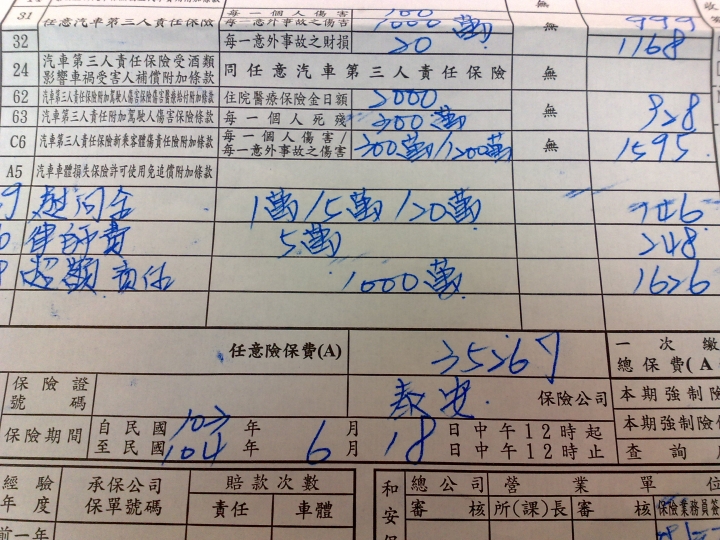 31 任意汽車第三人責任保險 每一個人傷害 無 999
每一意外事故之傷害 1000萬
32 每一意外事故之財損 20 無 1168
24 汽車第三人責任保險受酒類影響車禍受害人補償附加條款 同任意汽車第三人責任保險 無
62 汽車第三人責任保險附加駕駛人傷害保險傷害醫療給付附加條款 住院醫療保險金日額 2000
63 汽車第三人責任保險附加駕駛人傷害保險 每一個人死殘 300萬 無 928
C6 汽車第三人責任保險新乘客體傷責任險附加條款 每一個人傷害/每一意外事故之傷害 300萬/1200萬 無 1595
A5 汽車車體損失保險許可使用免追償附加條款
慰問金 1萬/5萬/20萬 946
律師費 5萬 248
超額責任 1000萬 1626
任意險保費(A) 35267 一次繳
總保費(A
保險證號碼 泰安 保險公司 本期強制險
保險期間 自民國 103 年 6 月 18 日中午12時起 本期強制險保
至民國 104 年 日中午12時止 查詢
經驗年度 承保公司保單號碼 賠款次數 和安 總公司營業單位
責任 車體 審核 所(課)長 審核 保險業務員簽
前一年